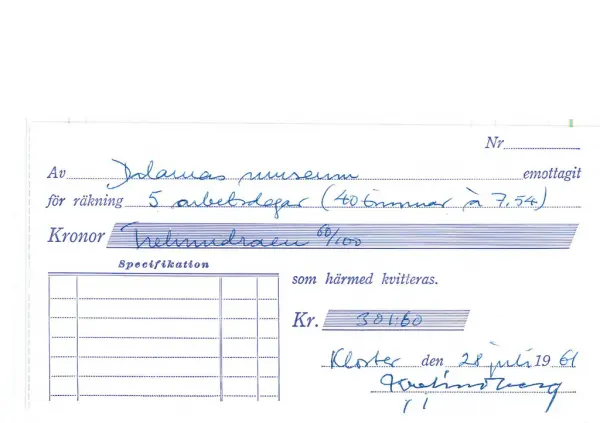 Nr
Av Dalarnas museum emottagit
för räkning 5 arbetsdagar (40 timmar à 7.54)
Kronor Trehundraen 60/100
Specifikation
som härmed kvitteras.
Kr. 301:60
Kloster den 28 juli 1961